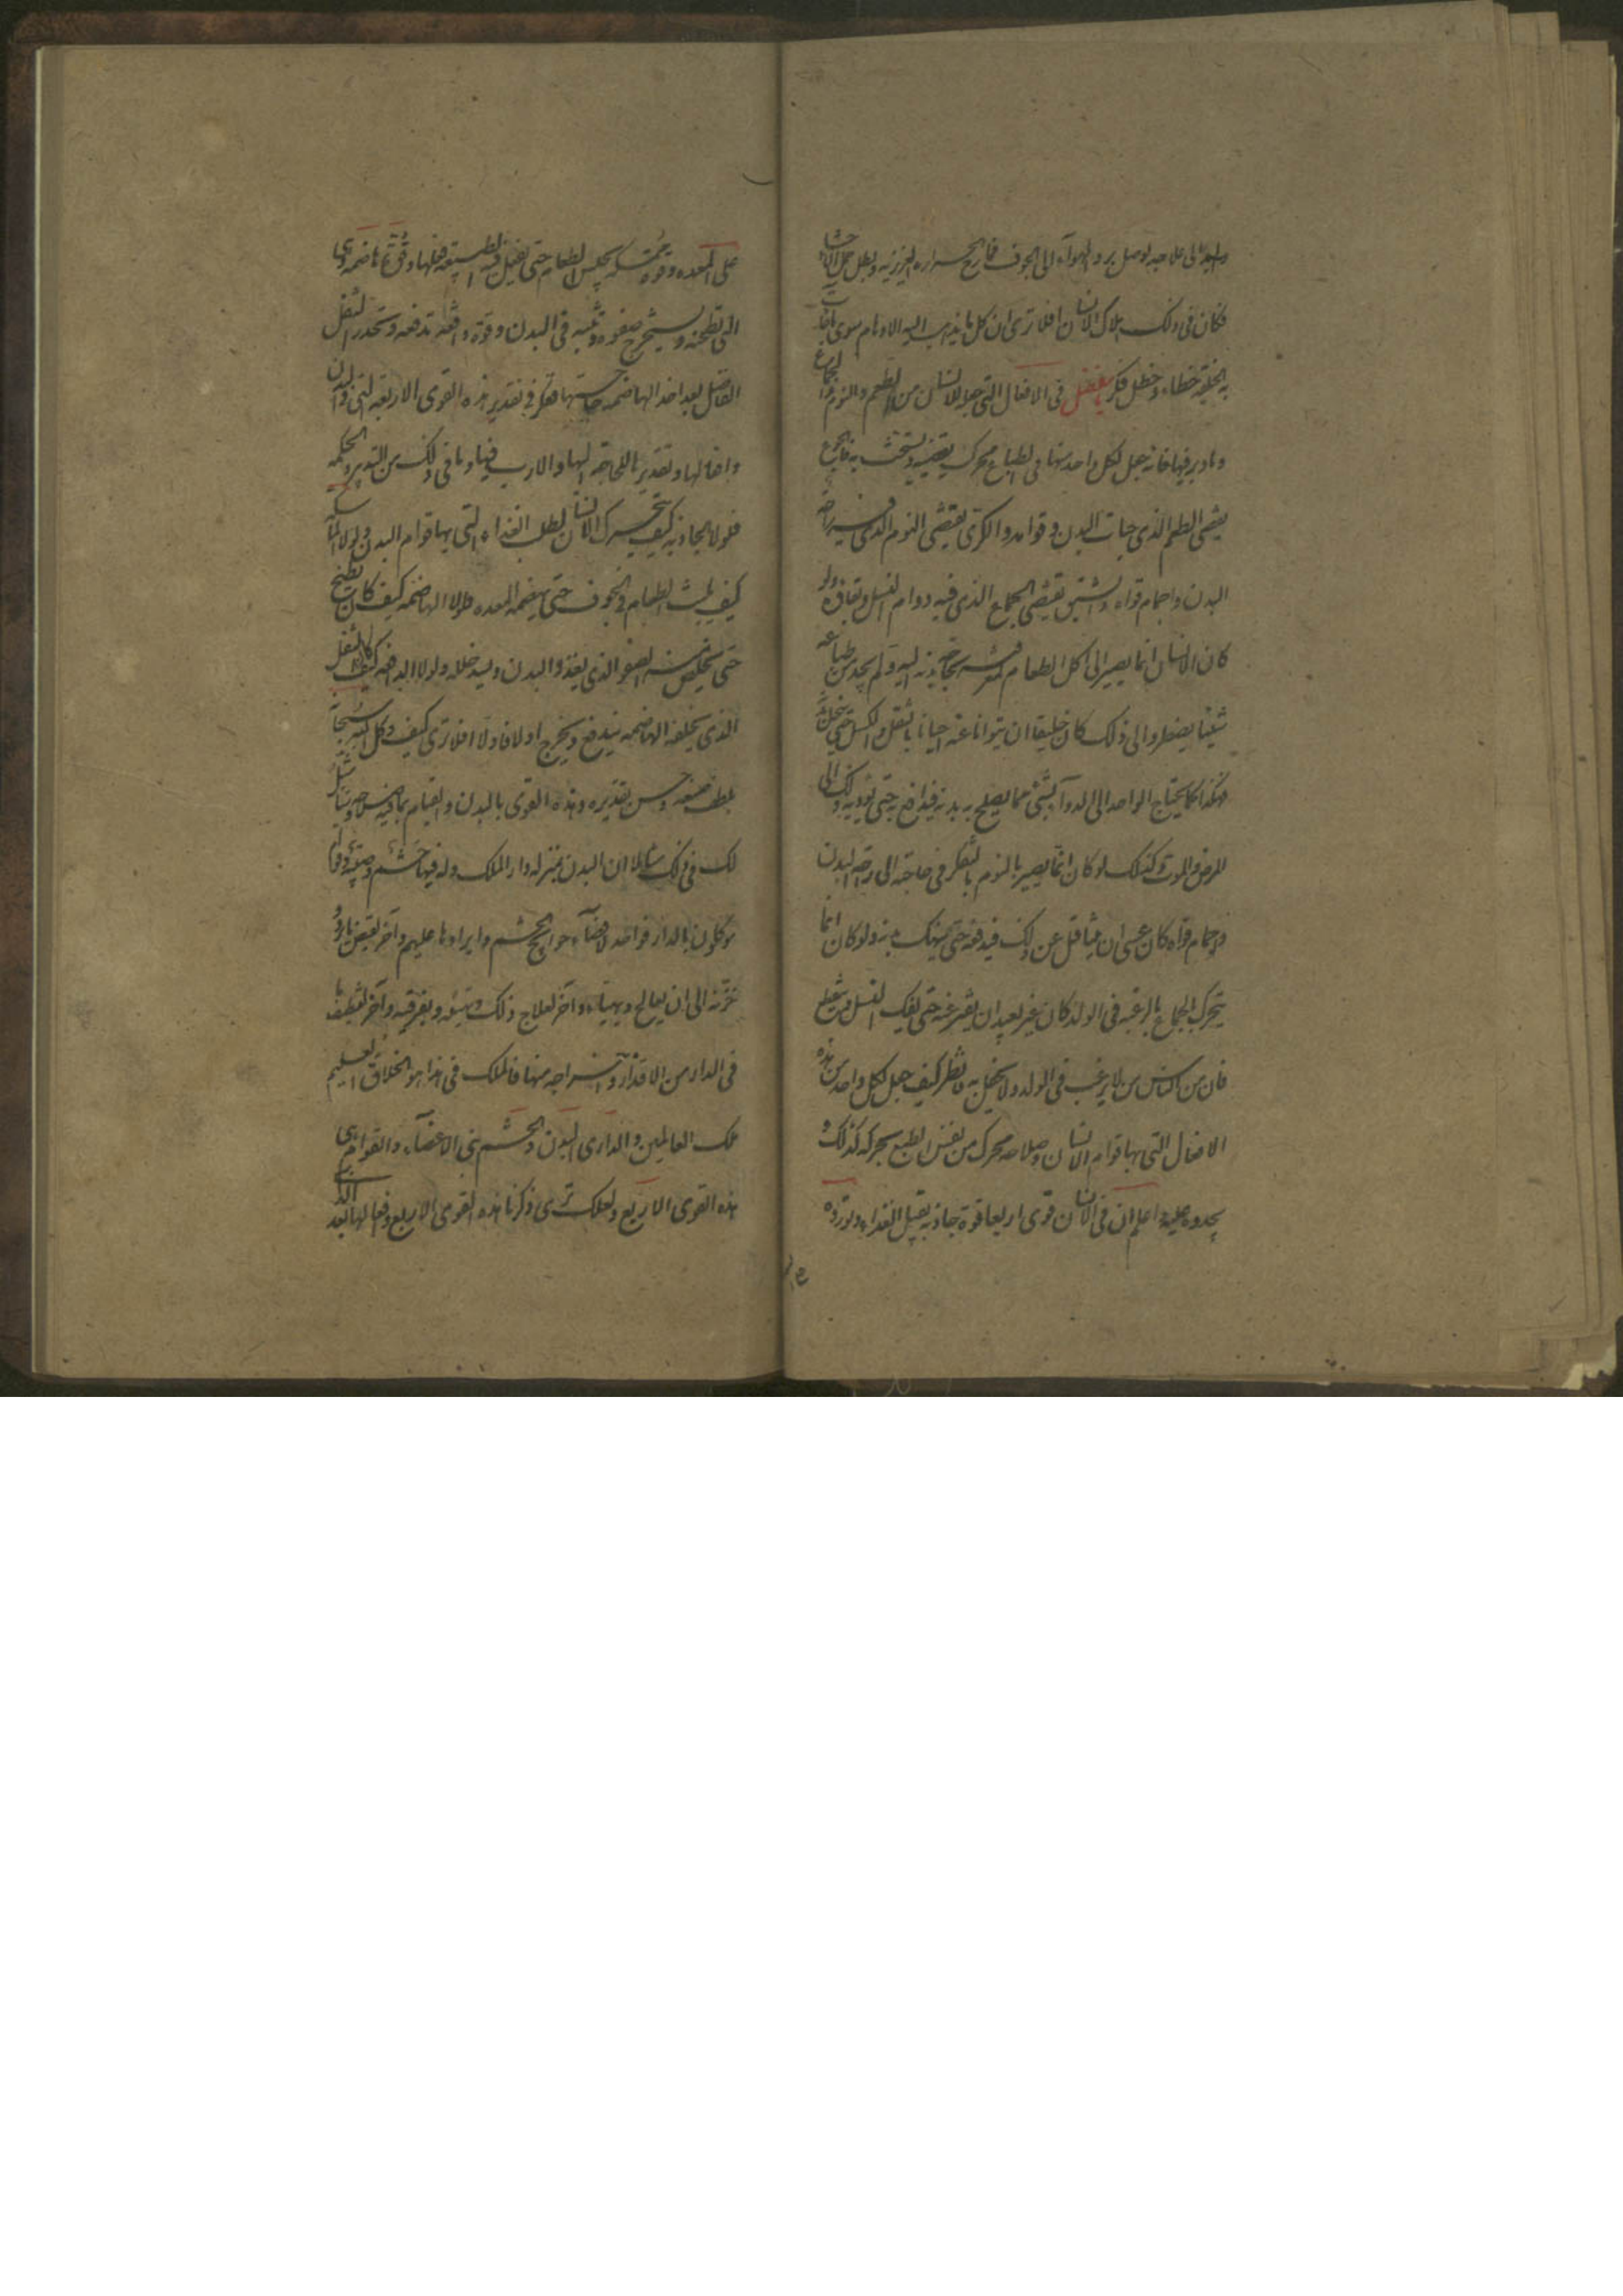 واليد الى علاجه لوصل برد الهواء الى الجوف فمازج الحرارة الغريزية وبطل عمل الاحشاء
فكان فى ذلك هلاك الانسان افلا ترى ان كل ما يذهب اليه الاوهام سوى ما جائت
به الخلقة خطاء وخطل فكر يا مفضل فى الافعال التى جعل للانسان من الطعم والنوم والجماع
وما دبر فيها فانه جعل لكل واحد منها فى الطباع محرك يقتضيه ويستحث به فالجوع
يقتضى الطعم الذى حيات البدن وقوامه والكرى يقتضى النوم الذى فيه راحة
البدن واجمام قواه والشبق يقتضى الجماع الذى فيه دوام النسل وبقاؤه ولو
كان الانسان انما يصير الى اكل الطعام لمعرفته بحاجة بدنه اليه ولم يجد من طباعه
شيئا يضطره الى ذلك كان خليقا ان يتوانا عنه احيانا بالثقل والكسل حتى ينحل
بدنه فيهلك كما يحتاج الواحد الى الدوآء لشئ مما يصلح به بدنه فيدافع به حتى يؤديه ذلك الى
المرض والموت وكذلك لو كان انما يصير بالنوم بالتفكر فى حاجته الى راحة البدن
واجمام قواه كان عسى ان يتثاقل عن ذلك فيدفعه حتى ينهك بدنه ولو كان انما
يتحرك للجماع بالرغبة فى الولد كان غير بعيد ان يفتر عنه حتى يقل النسل او ينقطع
فان من الناس من لا يرغب فى الولد ولا يحفل به فانظر كيف جعل لكل واحد من هذه
الافعال التى بها قوام الانسان وصلاحه محرك من نفس الطبع يحركه كذلك و
يحدوه عليه واعلم ان فى الانسان قوى اربعا قوة جاذبة تقبل الغذاء وتورده
على المعده وقوة ممسكة تحبس الطعام حتى تفعل فيه الطبيعة فعلها وقوة هاضمة وهى
التى تطحنه وتستخرج صفوه وتبثه فى البدن وقوة دافعة تدفعه وتحدر الثفل
الفاضل بعد اخذ الهاضمة حاجتها ففكر فى تقدير هذه القوى الاربعة التى فى البدن
وافعالها وتقديرها للحاجة اليها والارب فيها وما فى ذلك من التدبير والحكمة
فلولا الجاذبة كيف يتحرك الانسان لطلب الغذاء التى بها قوام البدن ولولا الماسكة
كيف يلبث الطعام فى الجوف حتى يهضمه المعده ولولا الهاضمة كيف كان ينطبخ
حتى يخلص منه الصفو الذى يغذو البدن ويسد خلله ولولا الدافعة كيف كان الثفل
الذى تخلفه الهاضمة يندفع ويخرج اولا فاولا افلا ترى كيف وكل الله سبحانه
بلطف صنعه وحسن تقديره هذه القوى بالبدن والقيام بما فيه صلاحه وسامثل
لك فى ذلك مثالا ان البدن بمنزلة دار الملك وله فيها حشم وصبية وقوام
موكلون بالدار فواحد لاقضآء حوائج الحشم وايرادها عليهم وآخر لقبض ما يرد و
خزنه الى ان يعالج ويهياء وآخر لعلاج ذلك وتهيئته وتفرقته وآخر لتنظيف ما
فى الدار من الاقذار واخراجه منها فالملك فى هذا هو الخلاق العليم
ملك العالمين والدار هى البدن والحشم هى الاعضآء والقوام هى
هذه القوى الاربع ولعلك ترى ذكرنا هذه القوى الاربع وافعالها بعد الذى